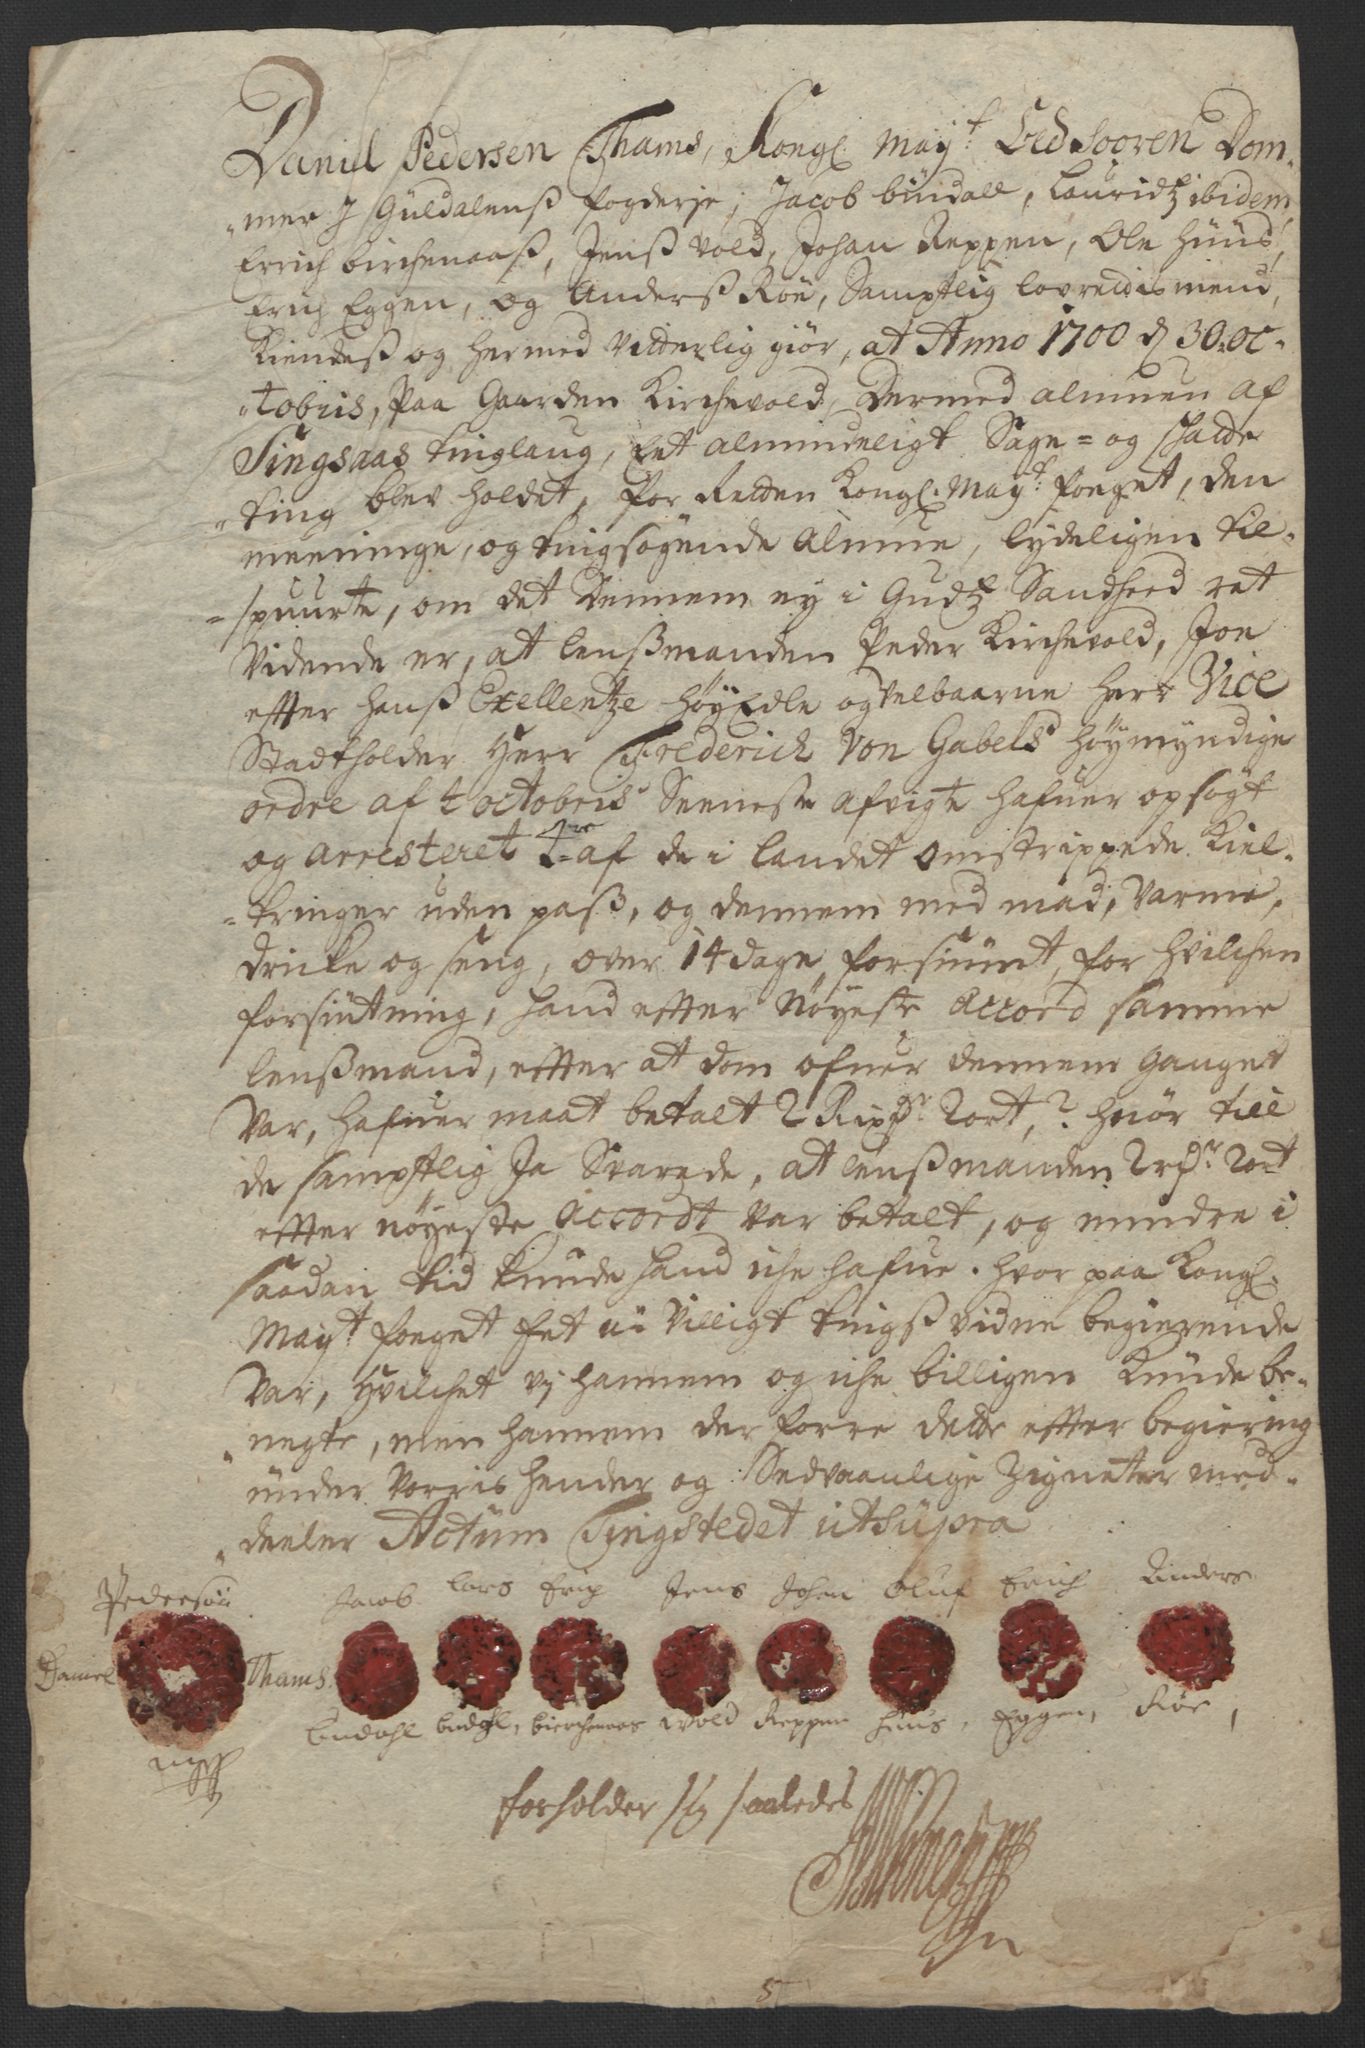 Daniel Pedersen Thams, Kongl. May.t Eedsooren Dom-
mer J Guldalenß fogderje, Jacob bündall, Lauridtz ibidem,
Errich birchenaaß, Jenß vold, Johan Reppen, Ole Hüüs,
Erich Eggen, og Anderß Röe, Samptlig lovrettis mend,
Kiendeß og hermed Vitterlig giör, at Anno 1700 d. 30. oc-
tobris, paa Gaarden Kirchevold, Dermed almuen af
Singsaas tinglaug, Eet almindeligt Sage= og schatte
ting blev holdet, for Retten Kongl. May.t foeget, den
meeninge, og tingsøgende Almue, lydeligen til-
spuurte, om det Dennem ey i Gudtz Sandheed ret
Vidende er, at lenßmanden Peder Kirchevold,
efter hanß Exellentze HöyEdle og Velbaarne Herr Vice
Stadtholder Herr Frederich Von Gabels höymyndige
ordre af octobris Seeneste afvigte hafuer opsögt
og arresteret af de i landet omstrippede Kiel-
tringer uden paß, og dennem med mad, varme,
dricke og seng, over 14 dage, forsiünt, for hvilchen
forsiütning, hand efter nöyeste Accord samme
lenßmand, efter at dom ofuer dennem ganget
var, hafuer maat betalt 2 Rixdr 2ort,? hvor till
de samptlig Ja Svarede, at lenßmanden 2 rdr 2ort
efter nöyeste Accordt var betalt, og mindre i
saadan tid kunde hand iche hafue. Hvor paa Kongl.
May.t foeget Eet u-villigt tingß vidne begierende
var, Hvilchet vj hannem og iche billigen kunde be-
negte, men hannem der forre dette efter begiering
under Vorris hender og Sedvaanlige Zigneter med-
deeler Actum Tingstedet ut supra
Pedersön Jacob Lars Erich Jens Johan Oluf Erich Anders
Daniel Thams
Bndahl Bndahl, bierchenaas Wold Reppen Hüus, Eggen, Röe,
mpp
forholder sig saaledes
5